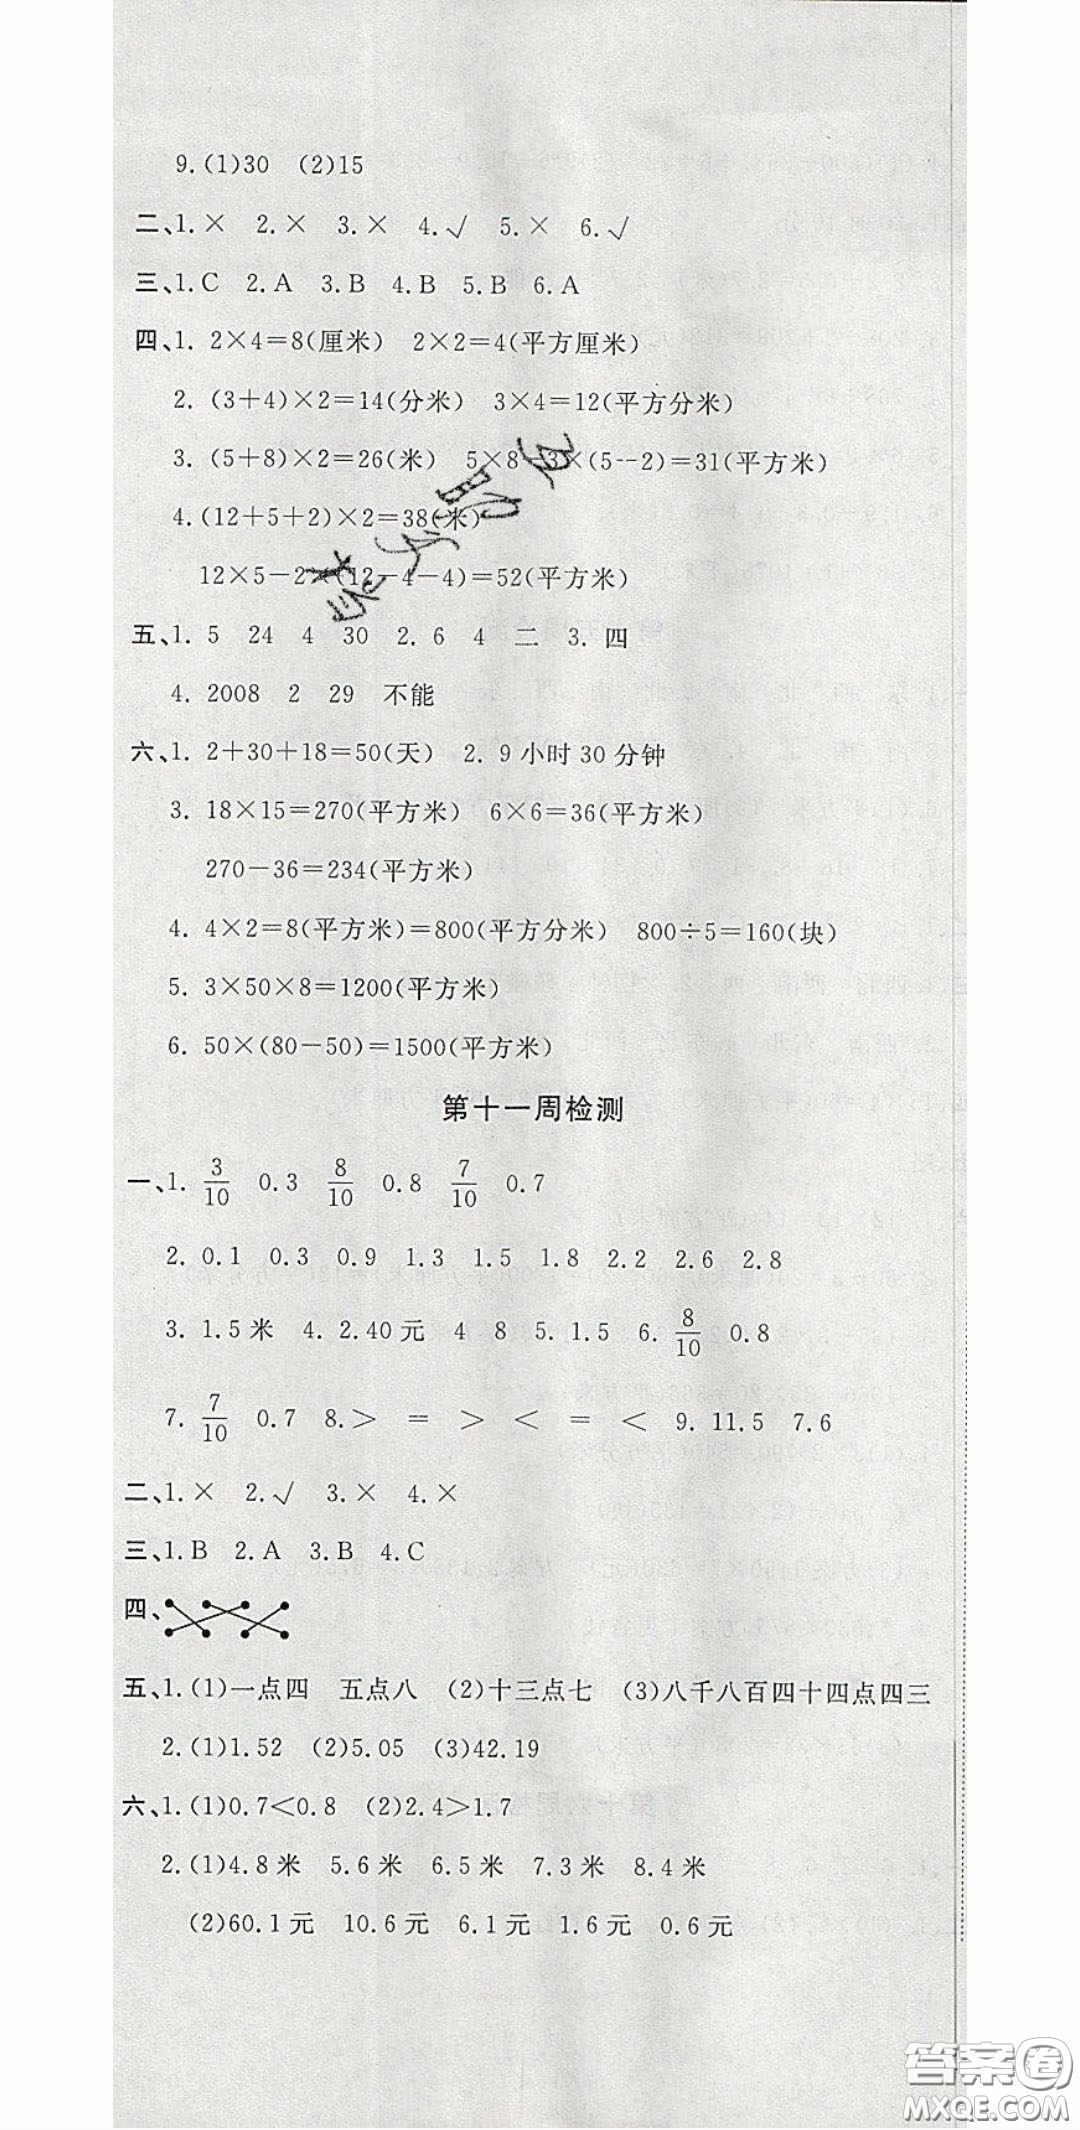 9.(1)30 (2)15
二、1.× 2.× 3.× 4.√ 5.× 6.√
三、1.C 2.A 3.B 4.B 5.B 6.A
四、1. 2×4=8(厘米) 2×2=4(平方厘米)
2. (3+4)×2=14(分米) 3×4=12(平方分米)
3. (5+8)×2=26(米) 5×8-3×(5--2)=31(平方米)
4.(12+5+2)×2=38(米)
12×5-2×(12-4-4)=52(平方米)
五、1. 5 24 4 30 2. 6 4 二 3. 四
4. 2008 2 29 不能
六、1. 2+30+18=50(天) 2. 9小时30分钟
3. 18×15=270(平方米) 6×6=36(平方米)
270-36=234(平方米)
4. 4×2=8(平方米)=800(平方分米) 800÷5=160(块)
5. 3×50×8=1200(平方米)
6. 50×(80-50)=1500(平方米)
第十一周检测
一、1. 3/10 0.3 8/10 0.8 7/10 0.7
2. 0.1 0.3 0.9 1.3 1.5 1.8 2.2 2.6 2.8
3. 1.5米 4. 2.40元 4 8 5. 1.5 6. 8/10 0.8
7. 7/10 0.7 8. > = > < = < 9. 11.5 7.6
二、1.× 2.√ 3.× 4.×
三、1.B 2.A 3.B 4.C
四、
五、1.(1)一点四 五点八 (2)十三点七 (3)八千八百四十四点四三
2.(1)1.52 (2)5.05 (3)42.19
六、1.(1)0.7<0.8 (2)2.4>1.7
2.(1)4.8米 5.6米 6.5米 7.3米 8.4米
(2)60.1元 10.6元 6.1元 1.6元 0.6元
答案圈
MXQE.COM